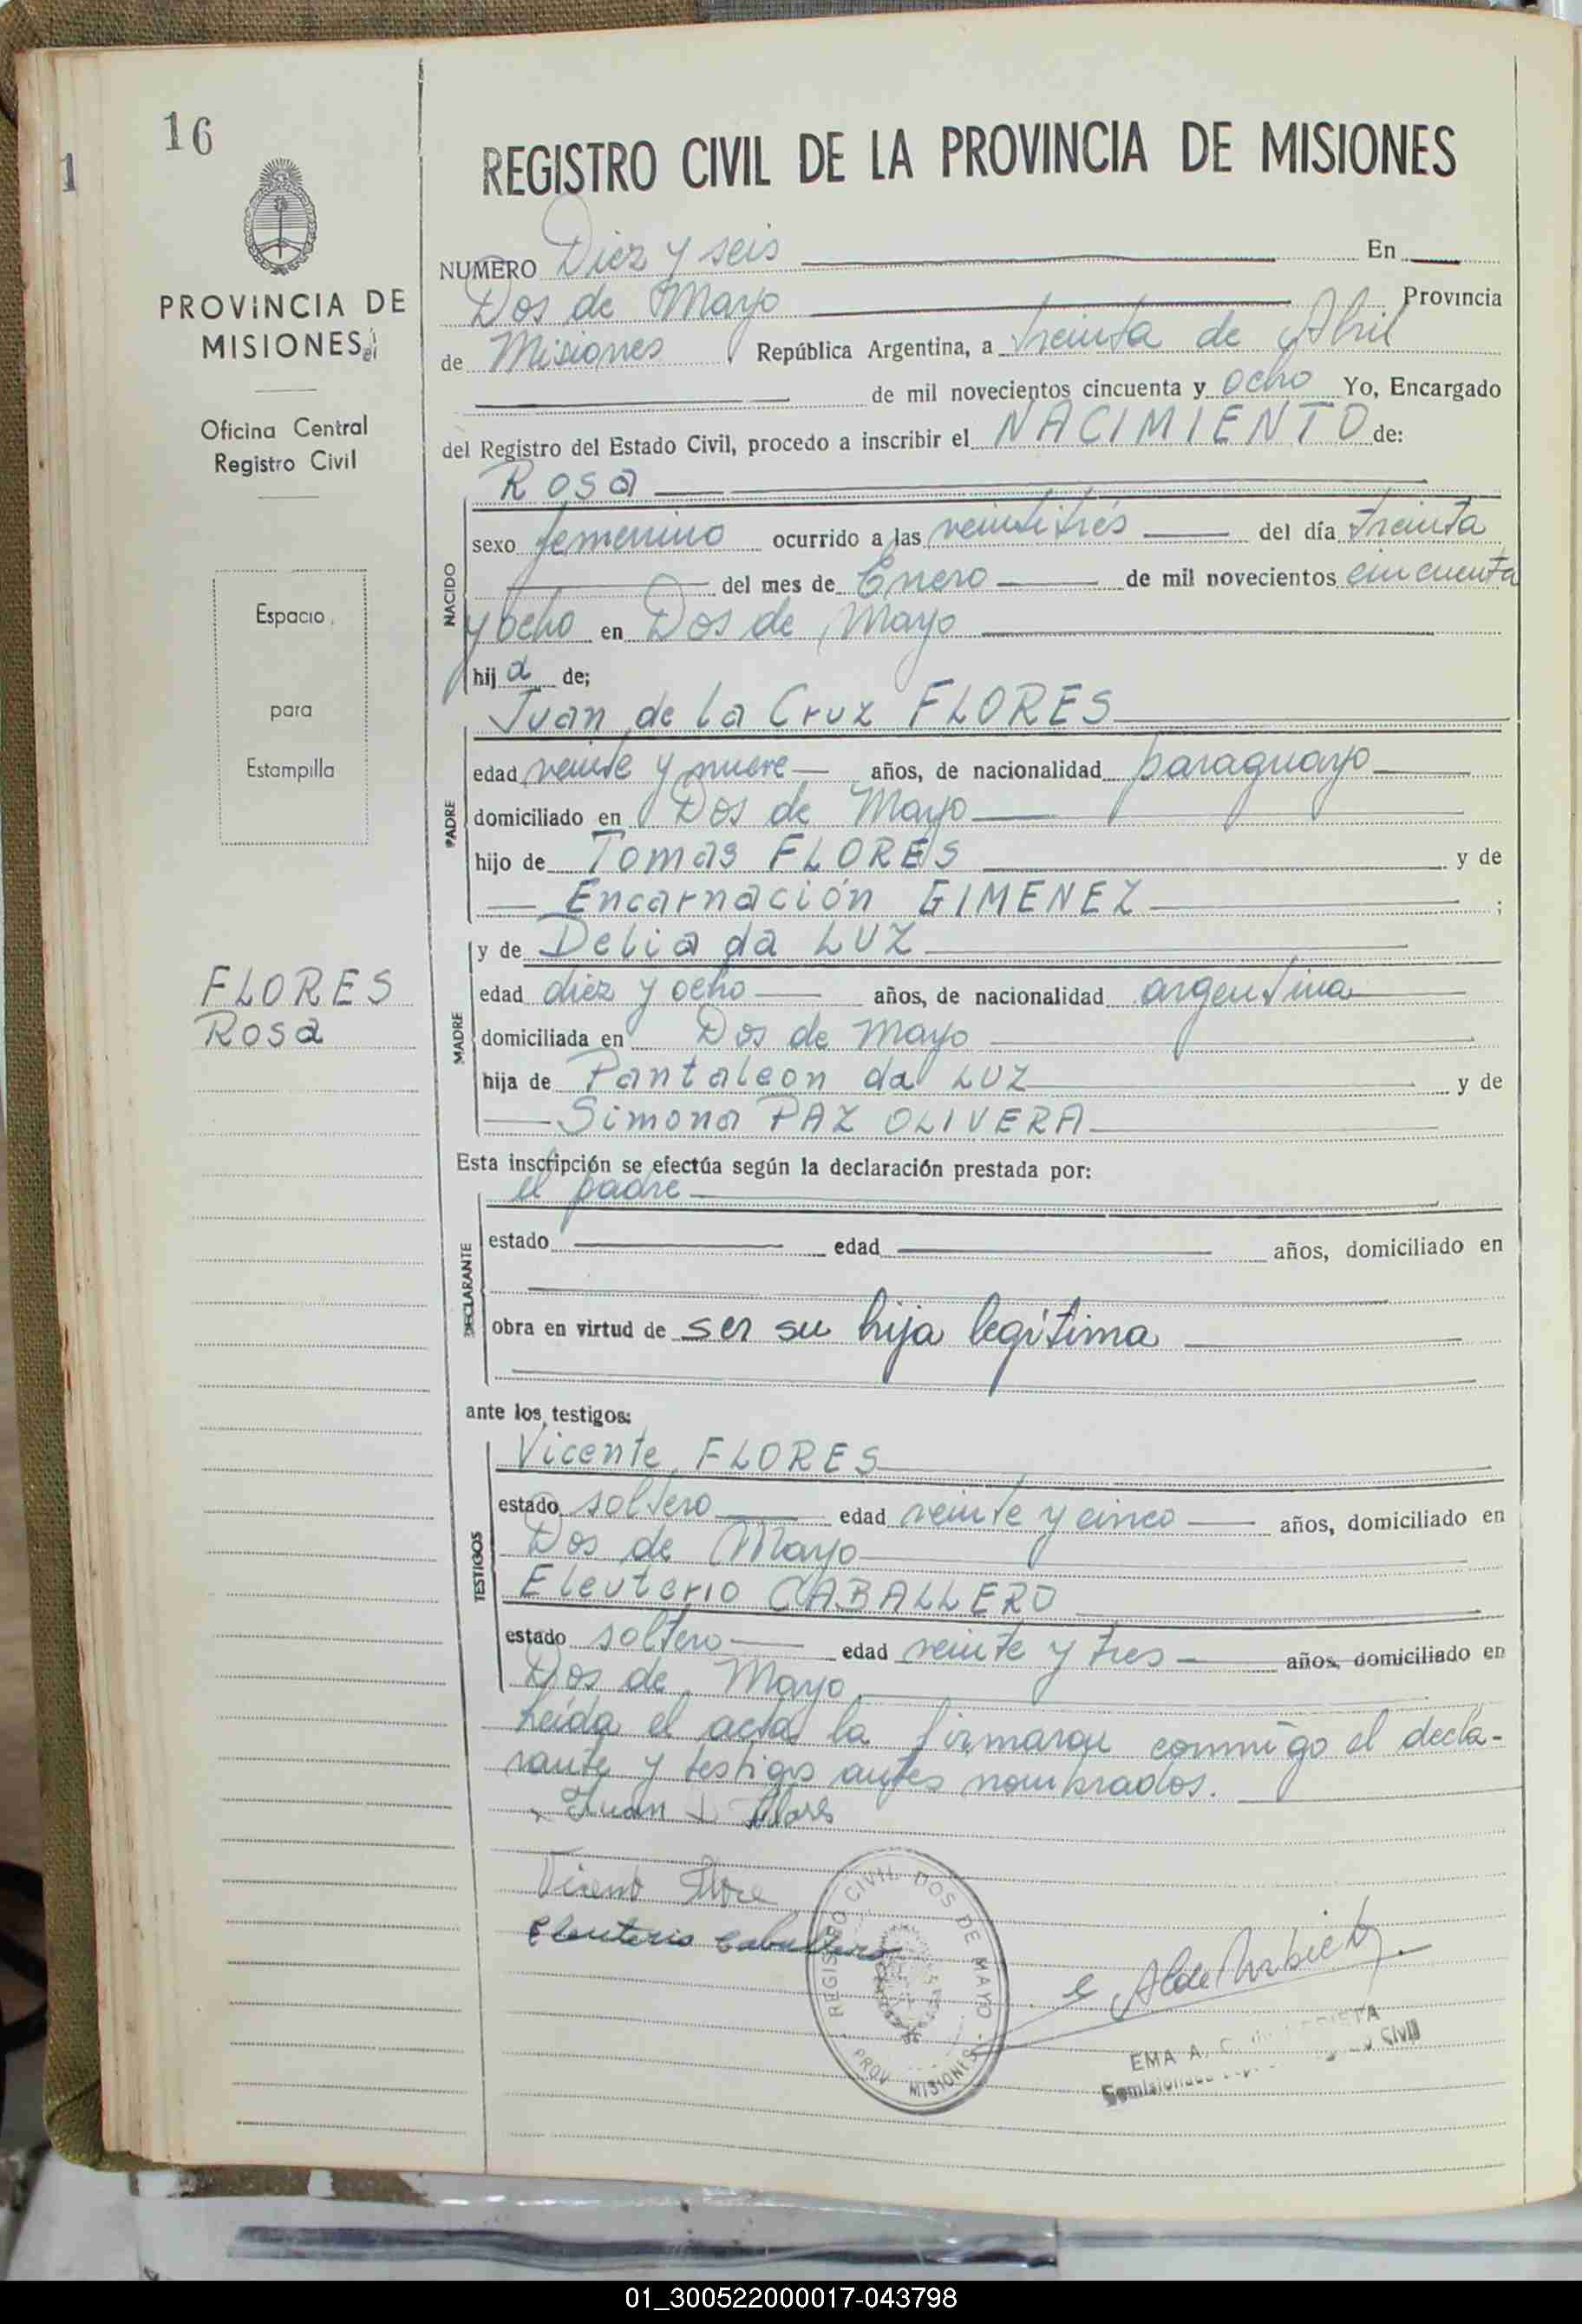 16
1
REGISTRO CIVIL DE LA PROVINCIA DE MISIONES
PROVINCIA DE
MISIONES
Oficina Central
Registro Civil
Espacio
para
Estampilla
FLORES
Rosa
NUMERO Diez y seis En
Dos de Mayo Provincia
de Misiones República Argentina, a treinta de Abril
de mil novecientos cincuenta y ocho Yo, Encargado
del Registro del Estado Civil, procedo a inscribir el NACIMIENTO de:
Rosa
NACIDO
sexo femenino ocurrido a las veintitrés del día treinta
del mes de Enero de mil novecientos cincuenta
y ocho en Dos de Mayo
hij a de;
Juan de la Cruz FLORES
PADRE
edad veinte y nueve años, de nacionalidad paraguayo
domiciliado en Dos de Mayo
hijo de Tomas FLORES y de
Encarnación GIMENEZ ;
y de Delia da LUZ
MADRE
edad diez y ocho años, de nacionalidad argentina
domiciliada en Dos de Mayo
hija de Pantaleon da LUZ y de
Simona PAZ OLIVERA
Esta inscripción se efectúa según la declaración prestada por:
el padre
DECLARANTE
estado edad años, domiciliado en
obra en virtud de ser su hija legítima
ante los testigos:
Vicente FLORES
TESTIGOS
estado soltero edad veinte y cinco años, domiciliado en
Dos de Mayo
Eleuterio CABALLERO
estado soltero edad veinte y tres años, domiciliado en
Dos de Mayo
Leída el acta la firmaron conmigo el decla-
rante y testigos antes nombrados.
Juan Flores
Eleuterio Caballero
REGISTRO CIVIL DOS DE MAYO
PROV. MISIONES
EMA A.
Civil
01_300522000017-043798